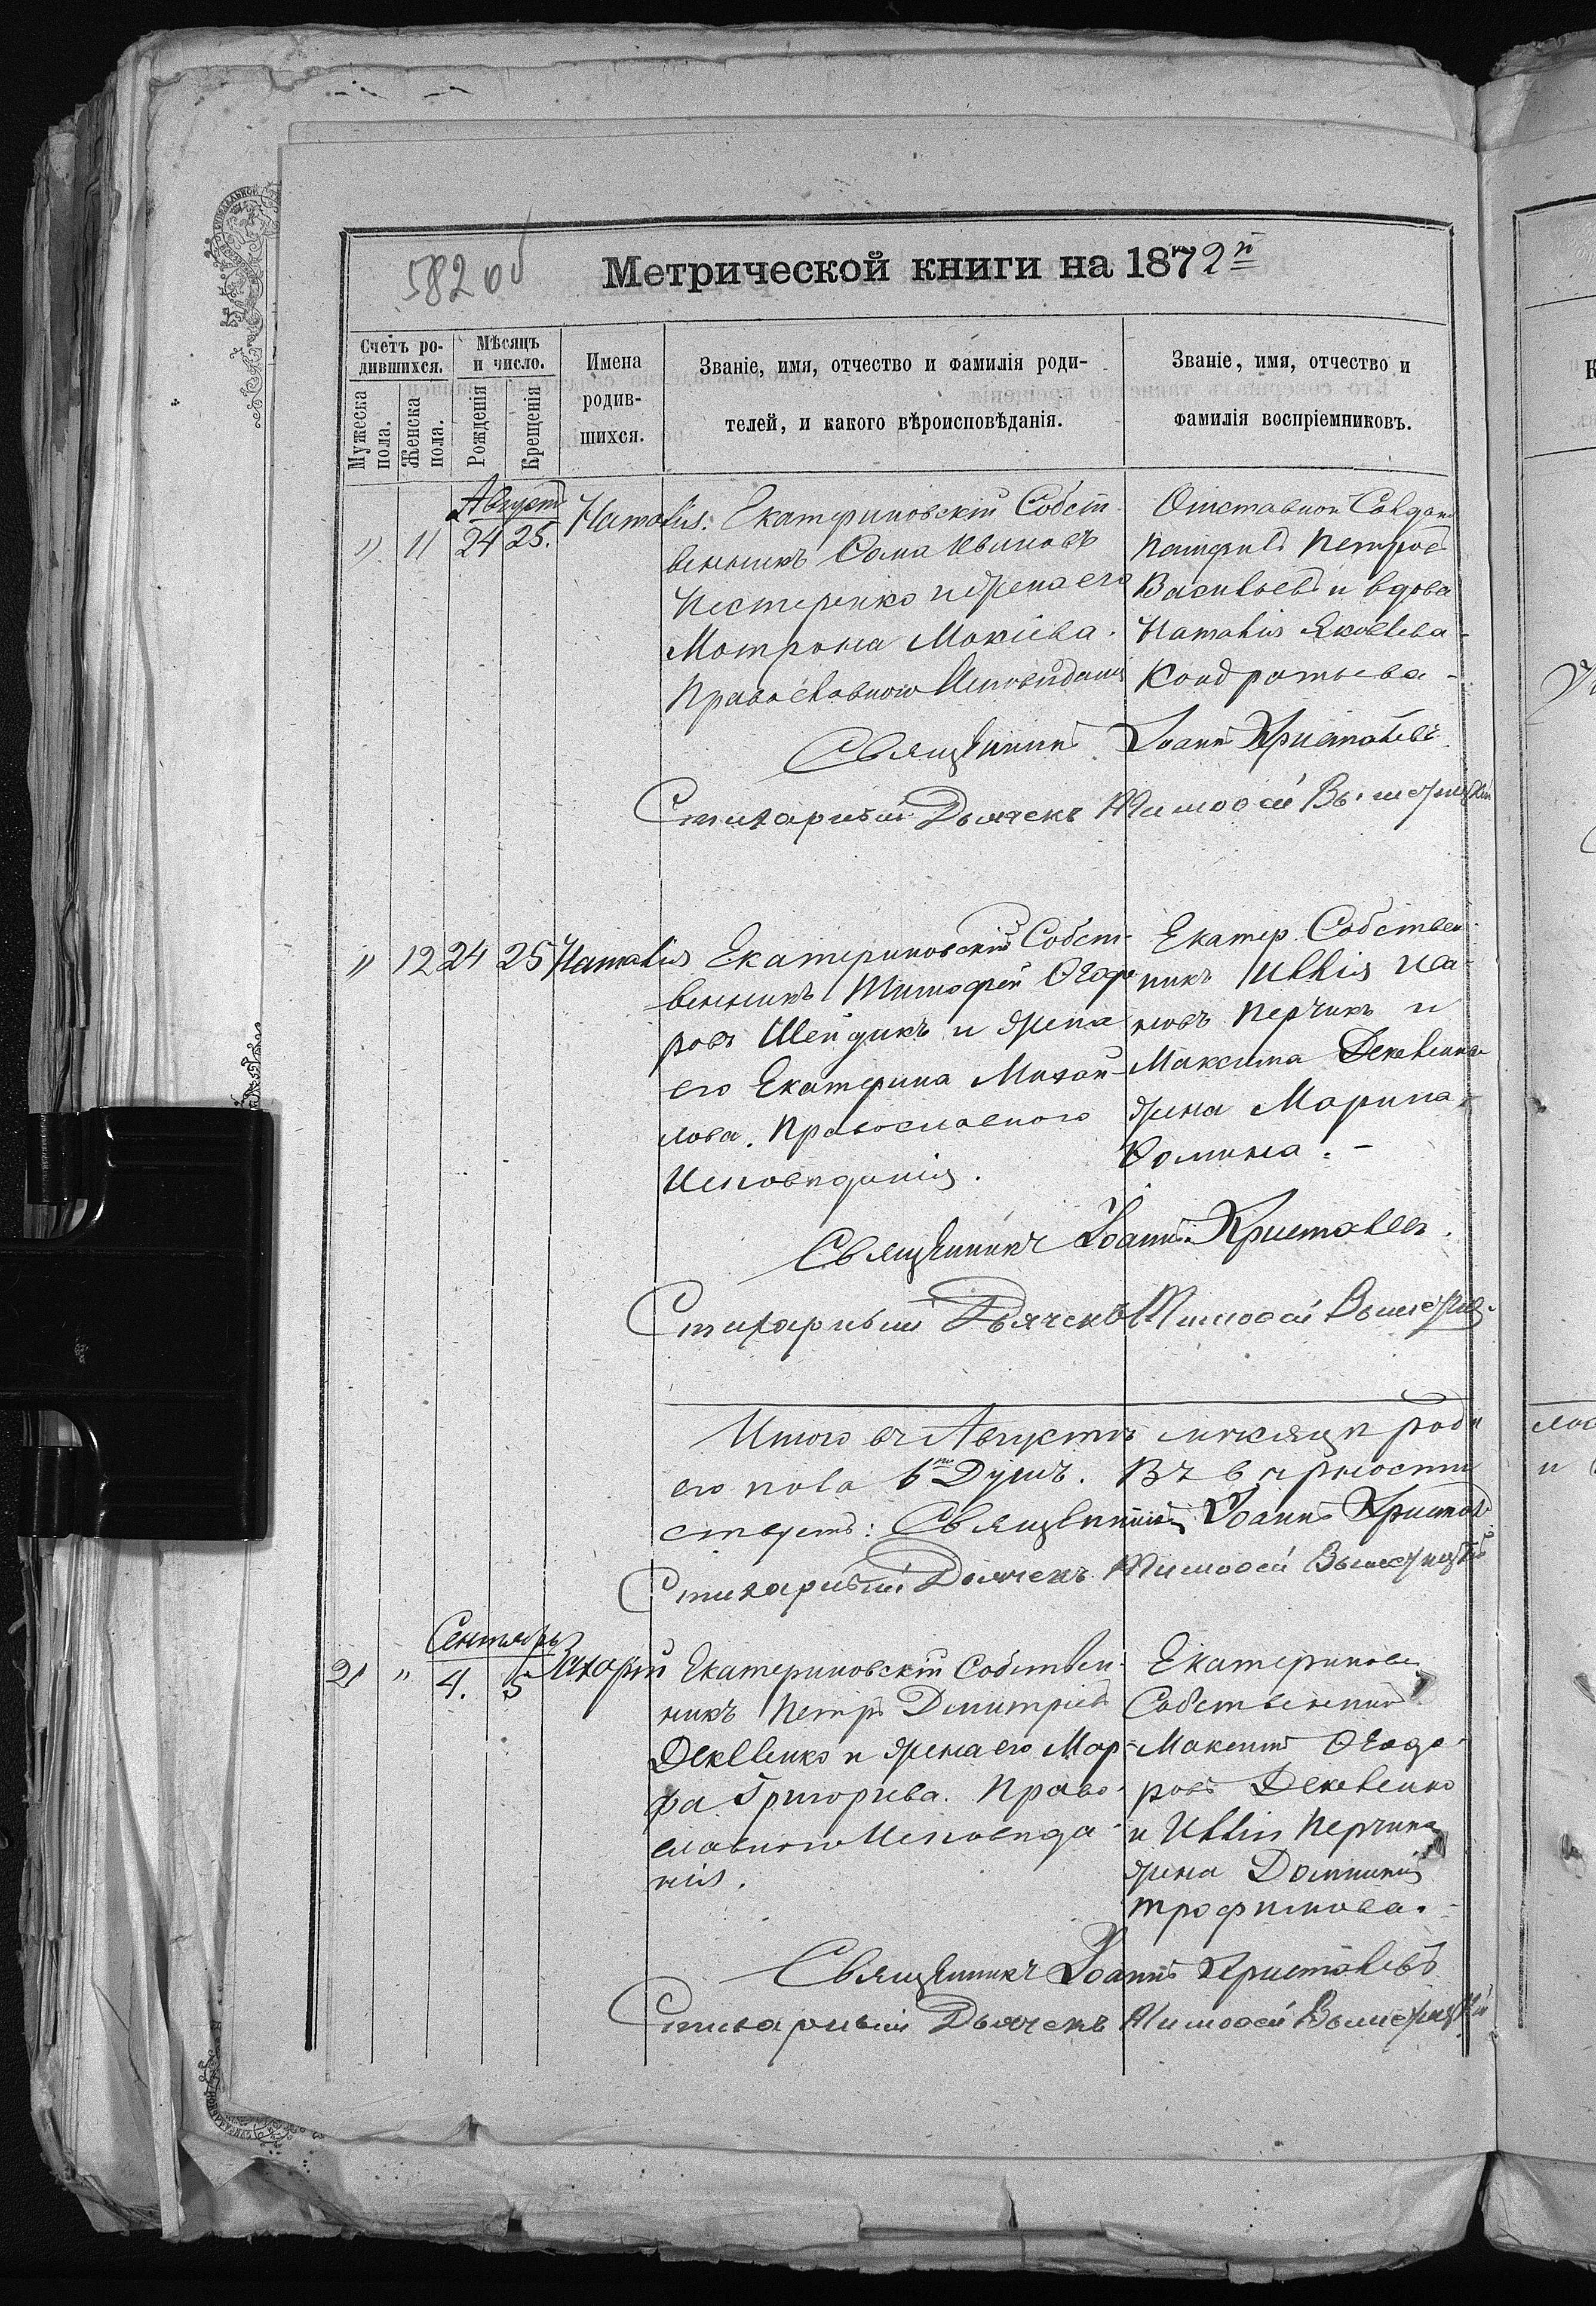 582 об
Метрической книги на 1872й
Счетъ ро-
дившихся.
Мужеска
пола.
Женска
пола.
Мѣсяцъ
и число.
Рожденія
Крещенія
Имена
родив-
шихся.
Званіе, имя, отчество и фамилія роди-
телей, и какого вѣроисповѣданія.
Званіе, имя, отчество и
фамилія воспріемниковъ.
Августъ
" 11 24 25. Наталія.
Екатериновскій Собст-
венникъ Сава Ивановъ
Нестеренко и жена его
Мотрона Мокіева.
Православного Исповѣданія
Отставной Солдатъ
Петровъ
Васильевъ и вдова
Наталія Яковлева
Кондратьева -
Священникъ Іоаннъ Христалевъ
Стихарный Дьячекъ Тимоѳей
" 12 24 25 Наталія
Екатериновскій Собст-
венникъ Тимофей Ѳеодо
ровъ Шейдикъ и жена
его Екатерина Михай-
лова. Православного
Исповѣданія.
Екатер. Собствен-
никъ Илія Ива-
новъ Перчикъ и
Максима
жена Марина
Ѳомина. -
Священникъ Іоаннъ Христалевъ.
Стихарный Дьячекъ Тимоѳей
Итого въ Августѣ мѣсяцѣ роди
его пола 6ть Душъ. Въ вѣрности
ствуетъ: Священникъ Іоаннъ
Стихарный Дьячекъ Тимоѳей
Сентябрь
21 " 4. 5 Захарій
Екатериновскій Собствен-
никъ Петръ Димитріевъ
и жена его Мар-
фа Григорьева. Право-
славного Исповѣда-
нія.
Екатериновс
Собственникъ
Максимъ Ѳеодо-
ровъ
и Иліи Перчика
жена Домникія
Трофимова.
Священникъ Іоаннъ Христалевъ
Стихарный Дьячекъ Тимоѳей